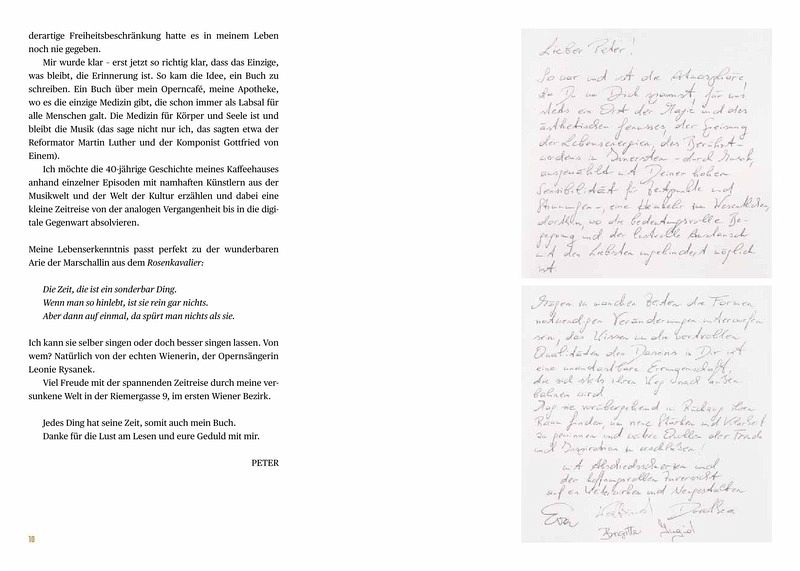 derartige Freiheitsbeschränkung hatte es in meinem Leben
noch nie gegeben.
Mir wurde klar – erst jetzt so richtig klar, dass das Einzige,
was bleibt, die Erinnerung ist. So kam die Idee, ein Buch zu
schreiben. Ein Buch über mein Operncafé, meine Apotheke,
wo es die einzige Medizin gibt, die schon immer als Labsal für
alle Menschen galt. Die Medizin für Körper und Seele ist und
bleibt die Musik (das sage nicht nur ich, das sagten etwa der
Reformator Martin Luther und der Komponist Gottfried von
Einem).
Ich möchte die 40-jährige Geschichte meines Kaffeehauses
anhand einzelner Episoden mit namhaften Künstlern aus der
Musikwelt und der Welt der Kultur erzählen und dabei eine
kleine Zeitreise von der analogen Vergangenheit bis in die digi-
tale Gegenwart absolvieren.
Meine Lebenserkenntnis passt perfekt zu der wunderbaren
Arie der Marschallin aus dem Rosenkavalier:
Die Zeit, die ist ein sonderbar Ding.
Wenn man so hinlebt, ist sie rein gar nichts.
Aber dann auf einmal, da spürt man nichts als sie.
Ich kann sie selber singen oder doch besser singen lassen. Von
wem? Natürlich von der echten Wienerin, der Opernsängerin
Leonie Rysanek.
Viel Freude mit der spannenden Zeitreise durch meine ver-
sunkene Welt in der Riemergasse 9, im ersten Wiener Bezirk.
Jedes Ding hat seine Zeit, somit auch mein Buch.
Danke für die Lust am Lesen und eure Geduld mit mir.
PETER
10
Lieber Peter!
So war und ist die Atmosphäre,
die Du um Dich spannst, für uns
stets ein Ort der Magie und des
ästhetischen Genusses, der
der Lebensenergien, des Berührt-
werdens im Innersten – durch Musik,
ausgewählt mit Deiner hohen
Sensibilität für Zeitpunkte und
Stimmungen –, eine zum Wesentlichen,
dorthin, wo die bedeutungsvolle Be-
gegnung und der lustvolle Austausch
mit den Liebsten ungehindert möglich
ist.
Mögen in manchen Zeiten die Formen
notwendigen Veränderungen unterworfen
sein, das Wissen um die wertvollen
Qualitäten des Daseins in Dir ist
eine unantastbare Errungenschaft,
die sich stets ihren Weg nach außen
bahnen wird.
Mag sie vorübergehend im Rückzug ihren
Raum finden, um neue Stärken und Klarheit
zu gewinnen und weitere Quellen der Freude
und Inspiration zu erschließen!
mit Abschiedsschmerzen und
der hoffnungsvollen Zuversicht
auf ein und Neugestalten
Eva Dorothea
Brigitte Ingrid